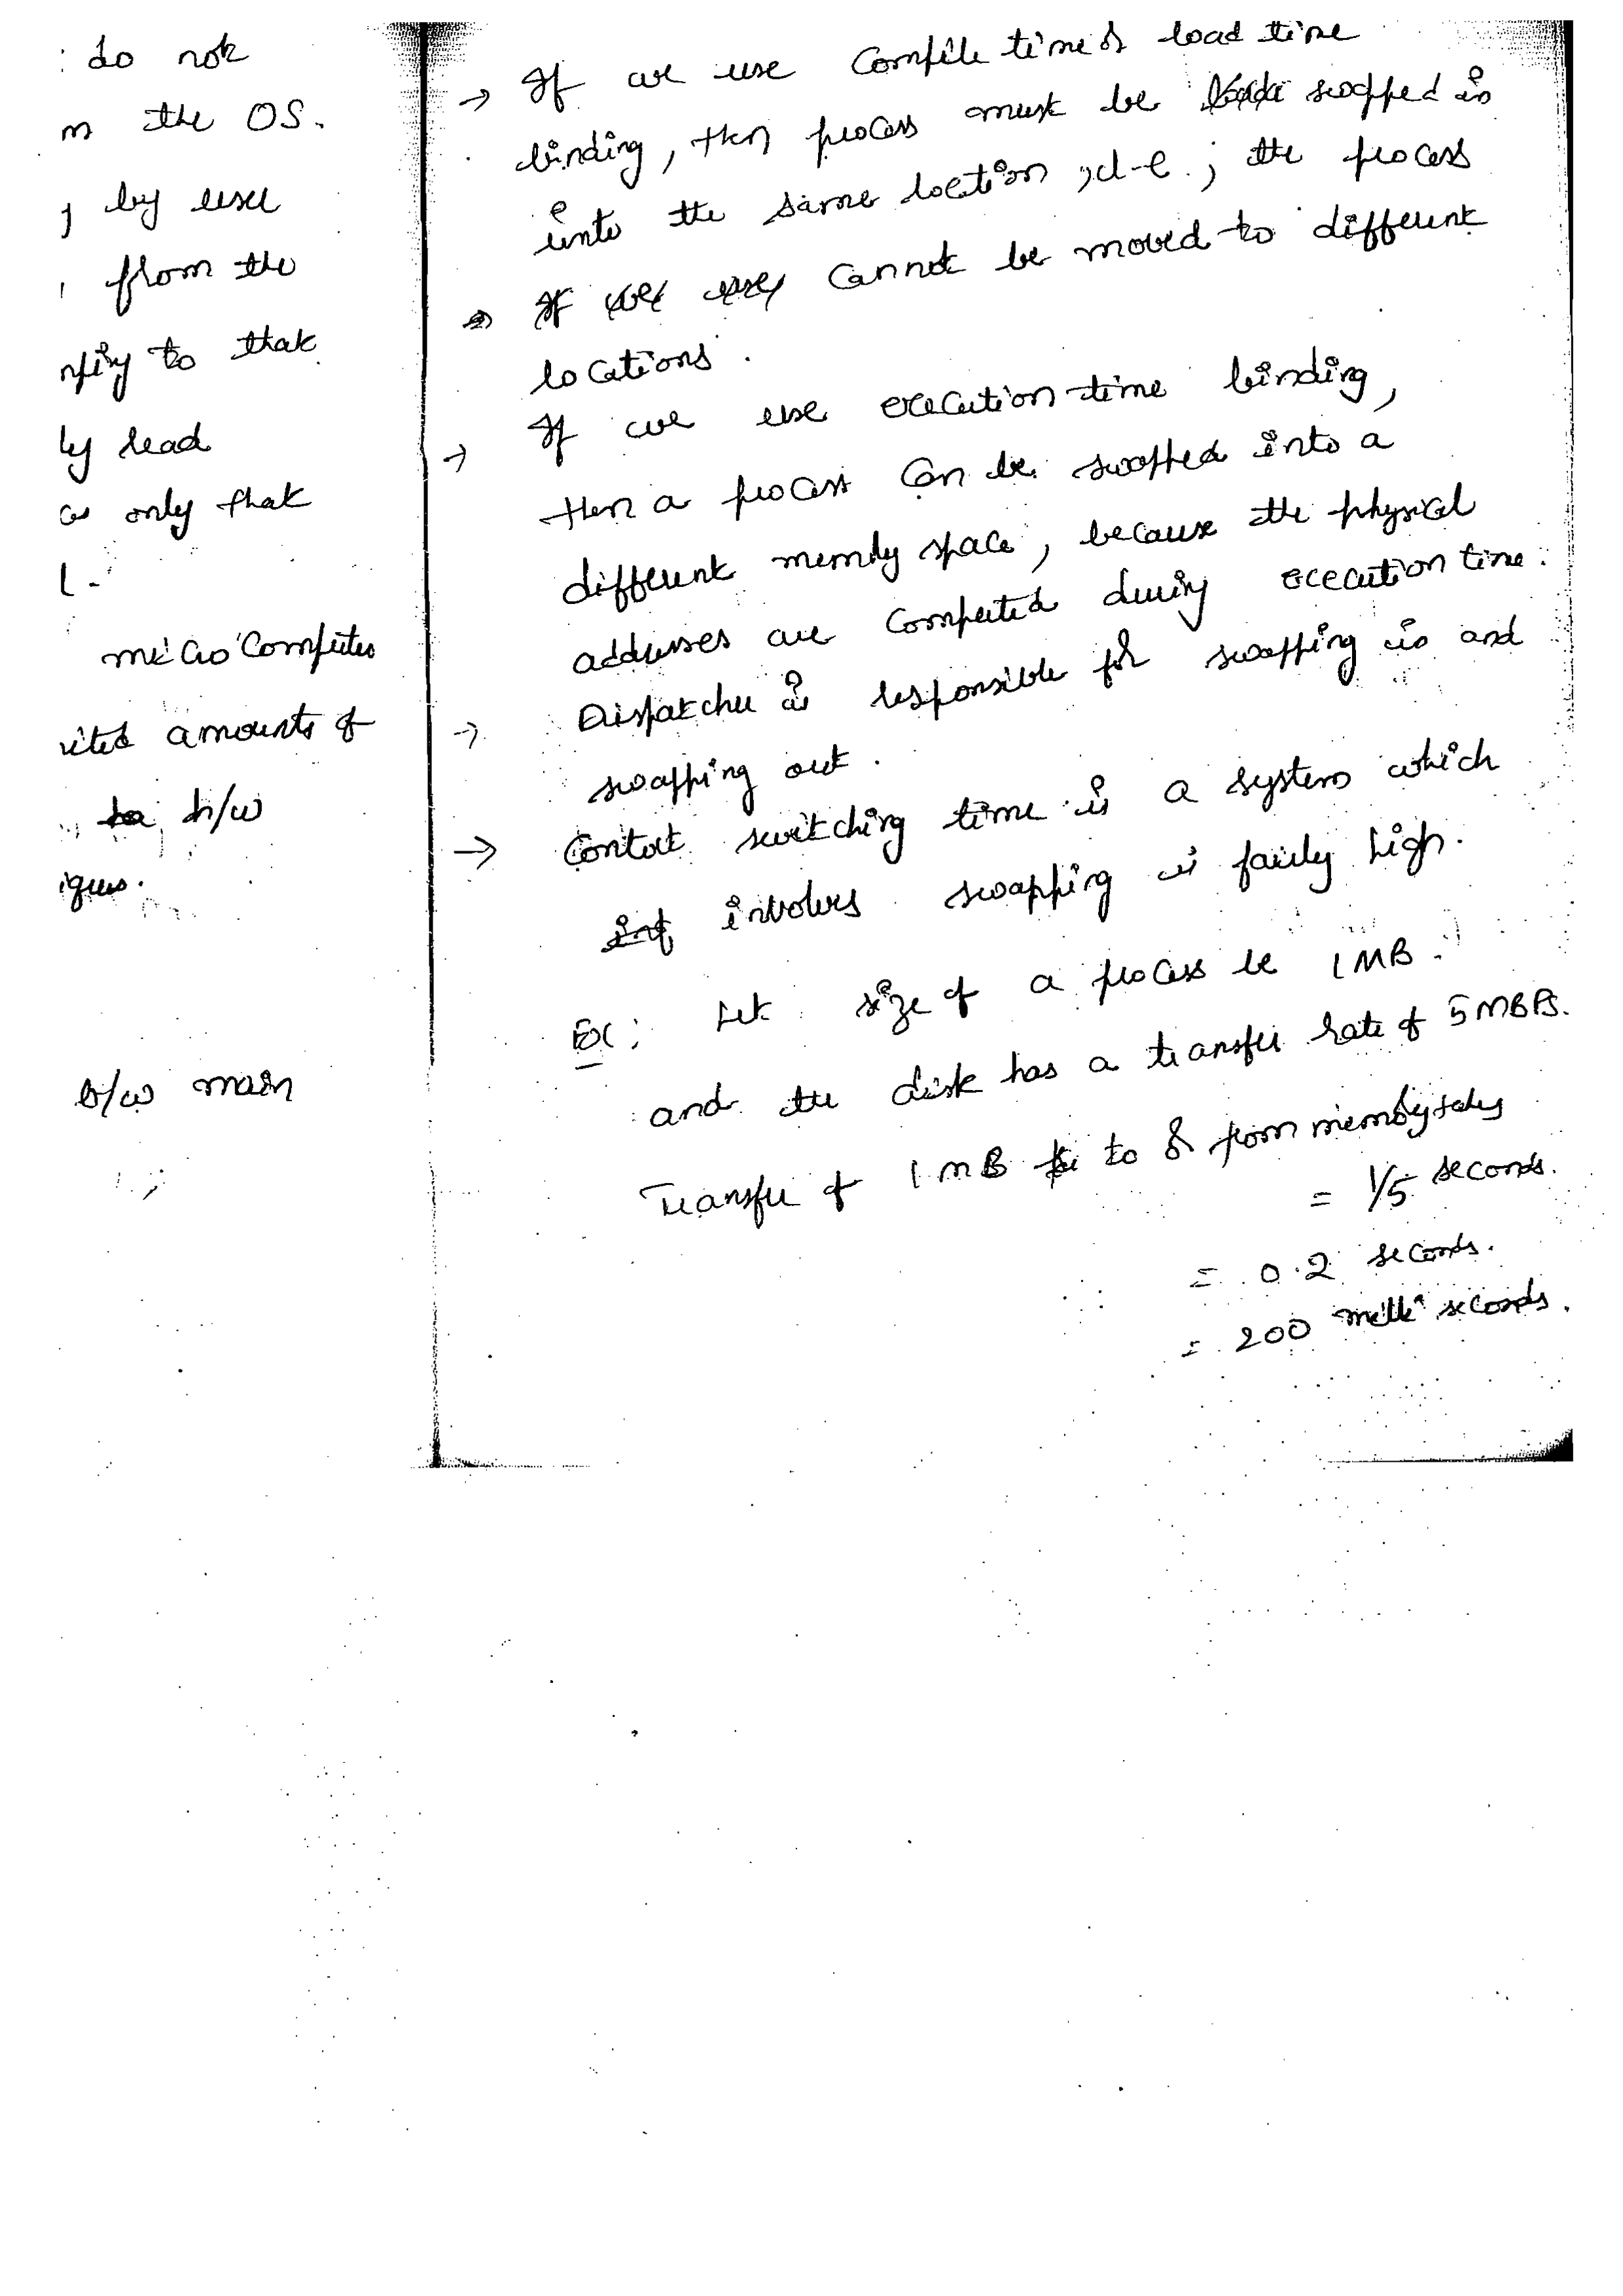 : do not
n the OS.
g by user
, from the
nfiny to that
ly lead
as only that
l -
micro Computers
vited amounts of
h/w
iques.
b/w main
→ If we use Compile time or load time
binding, then process must be swapped in
into the same location, i-e; the process
→ If we use cannot be moved to different
locations.
→ If we use execution-time binding,
then a process can be swapped into a
different memory space, because the physical
addresses are computed during execution time.
→ Dispatcher is responsible for swapping in and
swapping out.
→ Context switching time is a system which
int involves swapping is fairly high.
Ex: Let size of a process be 1 MB.
and the disk has a transfer rate of 5 MBPS.
Transfer of 1 MB to or from memory takes
= 1/5 seconds.
= 0.2 seconds.
= 200 milli seconds.